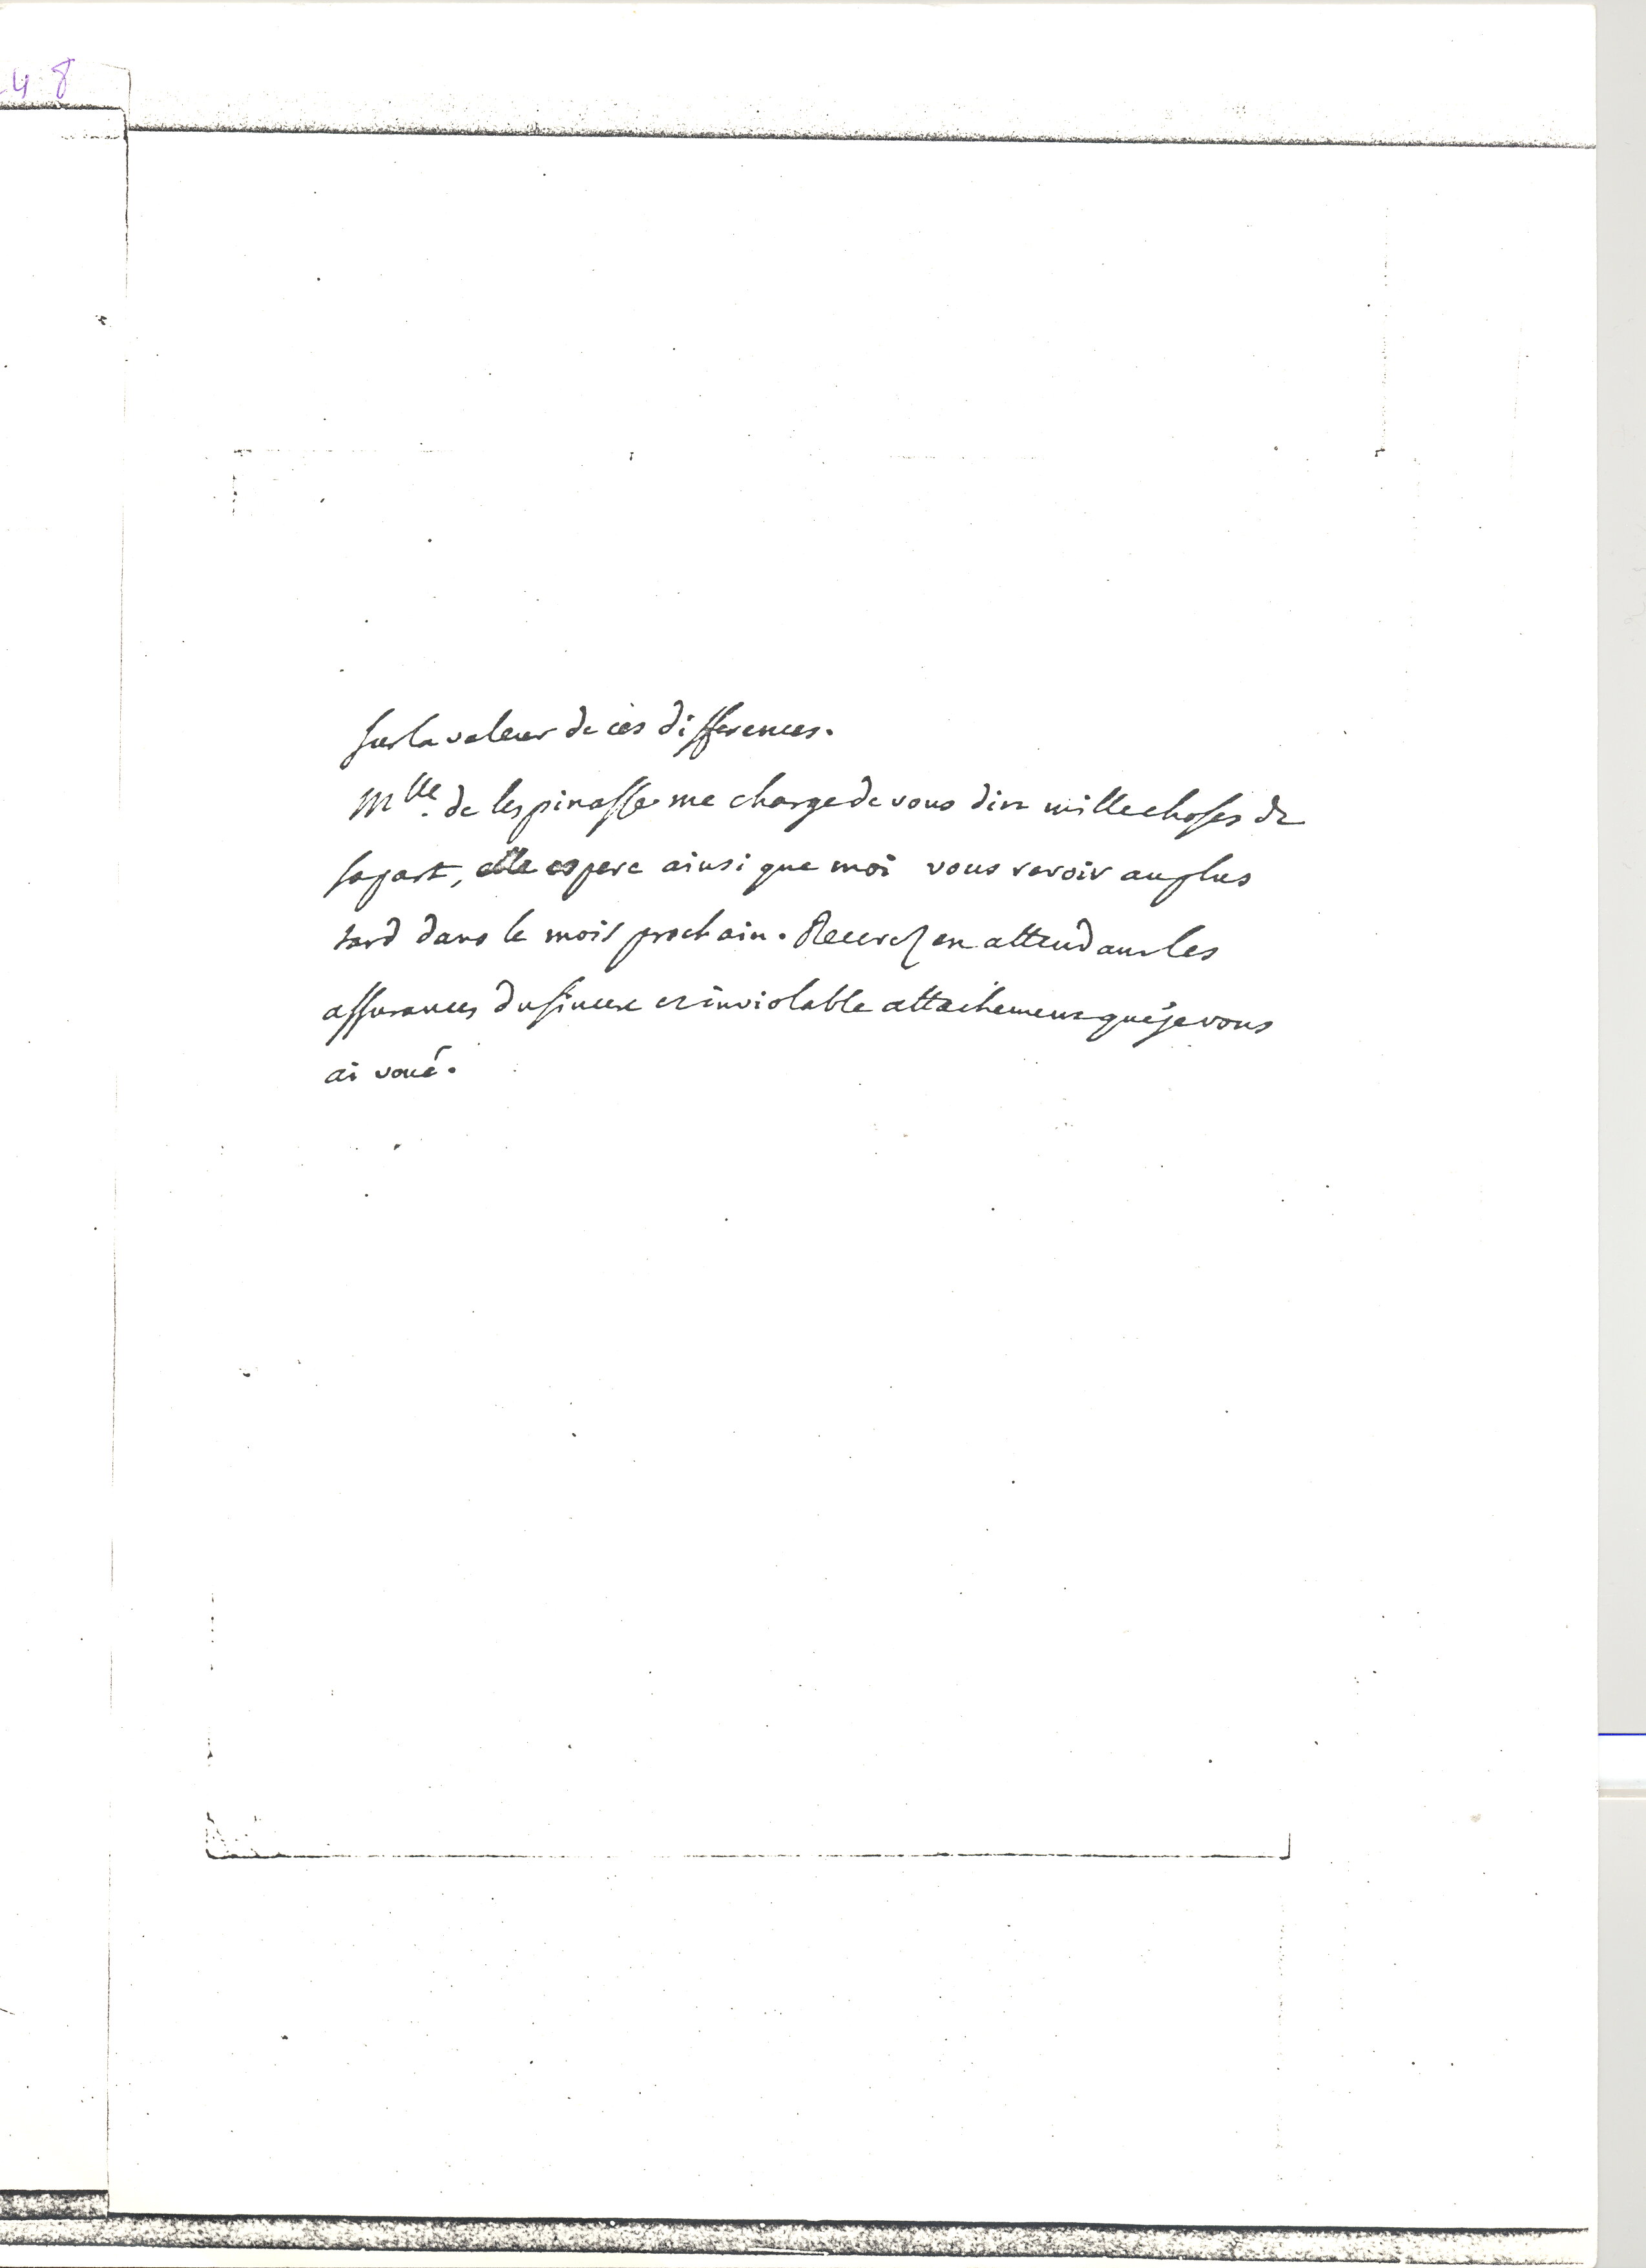 48
sur la valeur de ces differences.
Mlle. de lespinasse me charge de vous dire mille choses de
sa part, elle espere ainsi que moi vous revoir au plus
tard dans le mois prochain. Recevez en attendant les
assurances du sincere et inviolable attachement que je vous
ai voué.